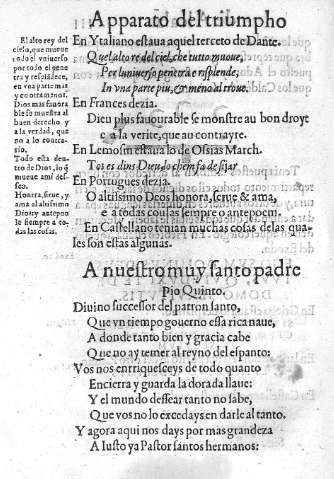 Apparato del triumpho
En Ytaliano estaua aquel terceto de Dante.
Quel alto re del ciel, che tutto muoue,
Per l'uniuerso penetra e risplende,
In vna parte piu, & meno altroue.
En Frances dezia.
Dieu plus fauourable se monstre au bon droyt
e a la verite, que au contrayre.
En Lemosin estaua lo de Osias March.
Tot es dins Dieu
En Portugues dezia.
O altissimo Deos honora, serue & ama,
e a todas cousas sempre o antepoem.
En Castellano tenian muchas cosas de las qua-
les son estas algunas.
El alto rey del
cielo, que mueue
todo el vniuerso
por todo el pene
tra y resplādece,
en vna parte mas
y en otra menos.
Dios mas fauora
ble se muestra al
buen derecho y
a la verdad, que
no a lo contra-
rio.
Todo esta den-
tro de Dios, lo q̄
mueue ami des-
seo.
Honora, serue, y
ama al altissimo
Dios: y antepon
le siempre a to-
das las cosas.
A nuestro muy santo padre
Pio Quinto.
Diuino successor del patron santo,
Que vn tiempo gouerno essa rica naue,
A donde tanto bien y gracia cabe
Que no ay temer al reyno del espanto:
Vos nos enrriquesceys de todo quanto
Encierra y guarda la dorada llaue:
Y el mundo dessear tanto no sabe,
Que vos no lo excedays en darle al tanto.
Y agora aqui nos days por mas grandeza
A Iusto ya Pastor santos hermanos: